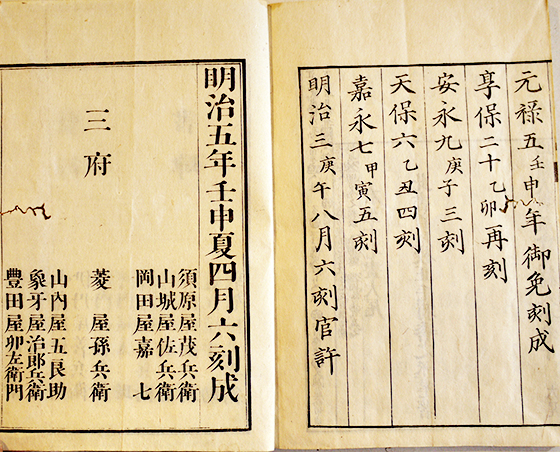 元禄五壬申年御免刻成
享保二十乙卯再刻
安永九庚子三刻
天保六乙丑四刻
嘉永七甲寅五刻
明治三庚午八月六刻官許
明治五年壬申夏四月六刻成
三府
須原屋茂兵衛
山城屋佐兵衛
岡田屋嘉七
菱屋孫兵衛
山内屋五良助
象牙屋治郎兵衛
豊田屋卯左衛門